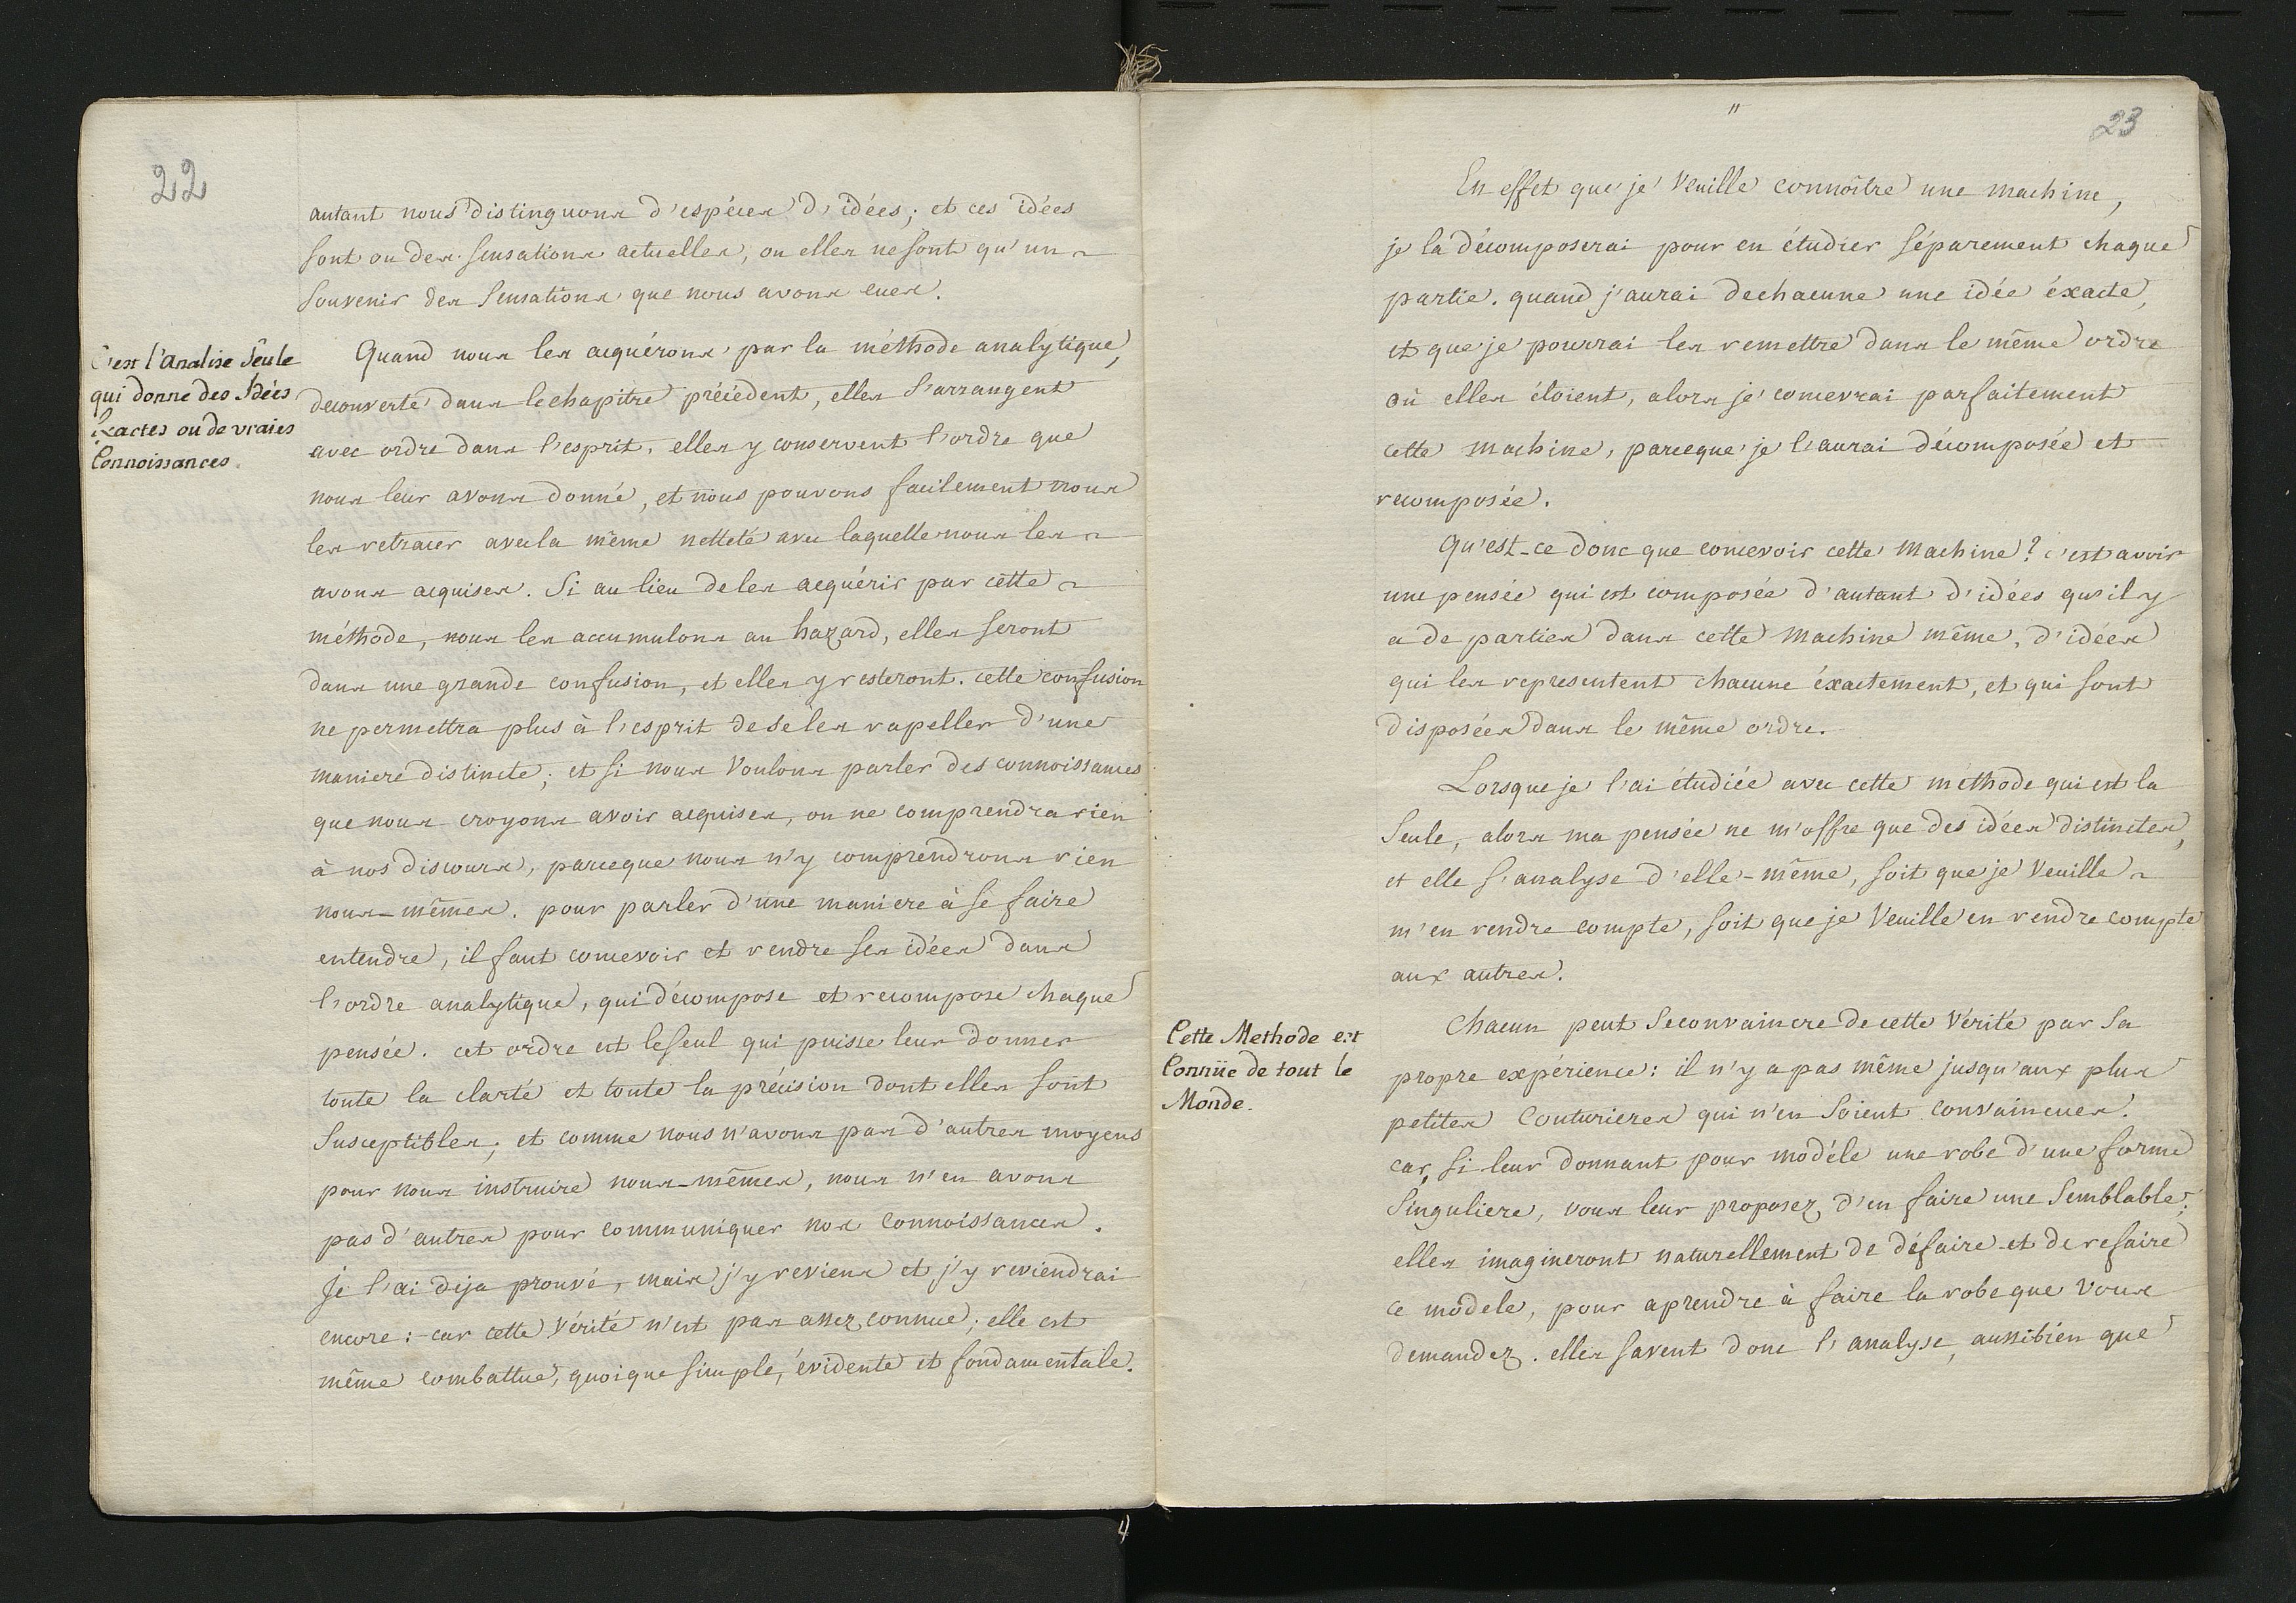 22
autant nous distinguons d'espéces d'idées; et ces idées
sont ou des sensations actuelles, ou elles ne sont qu'un
souvenir des sensations que nous avons eues.
C'est l'Analise Seule
qui donne des Idées
Exactes ou de vraies
Connoissances.
Quand nous les acquérons par la méthode analytique,
decouverte dans le chapitre précédent, elles s'arrangent
avec ordre dans l'esprit, elles y conservent l'ordre que
nous leur avons donné, et nous pouvons facilement nous
les retracer avec la même netteté avec laquelle nous les
avons acquises. Si au lieu de les acquérir par cette
méthode, nous les accumulons au hazard, elles seront
dans une grande confusion, et elles y resteront. cette confusion
ne permettra plus à l'esprit de se les rapeller d'une
maniere distincte; et si nous voulons parler des connoissances
que nous croyons avoir acquises, on ne comprendra rien
à nos discours, parceque nous n'y comprendrons rien
nous-mêmes. pour parler d'une maniere à se faire
entendre, il faut concevoir et rendre ses idées dans
l'ordre analytique, qui décompose et recompose chaque
pensée. cet ordre est le seul qui puisse leur donner
toute la clarté et toute la précision dont elles sont
Susceptibles; et comme nous n'avons pas d'autres moyens
pour nous instruire nous-mêmes, nous n'en avons
pas d'autres pour communiquer nos connoissances.
Je l'ai deja prouvé, mais j'y reviens et j'y reviendrai
encore: car cette vérité n'est pas assez connue; elle est
même combattue, quoique simple, évidente et fondamentale.
"
23
En effet que je veuille connoître une machine,
je la décomposerai pour en étudier séparement chaque
partie. quand j'aurai de chacune une idée éxacte,
et que je pourrai les remettre dans le même ordre
où elles étoient, alors je concevrai parfaitement
cette machine, parceque je l'aurai décomposée et
recomposée.
Qu'est-ce donc que concevoir cette machine? c'est avoir
une pensée qui est composée d'autant d'idées qu'il y
a de parties dans cette machine même, d'idées
qui les representent chacune éxactement, et qui sont
disposées dans le même ordre.
Lorsque je l'ai étudiée avec cette méthode qui est la
Seule, alors ma pensée ne m'offre que des idées distinctes,
et elle s'analyse d'elle-même, soit que je veuille
m'en rendre compte, soit que je veuille en rendre compte
aux autres.
Cette Methode est
Connüe de tout le
Monde.
Chacun peut se convaincre de cette vérité par sa
propre expérience: il n'y a pas même jusqu'aux plus
petites Couturieres qui n'en soient convaincues:
car, si leur donnant pour modéle une robe d'une forme
Singuliere, vous leur proposez d'en faire une semblable;
elles imagineront naturellement de défaire et de refaire
ce modele, pour aprendre à faire la robe que vous
demandez. elles savent donc l'analyse, aussibien que
4